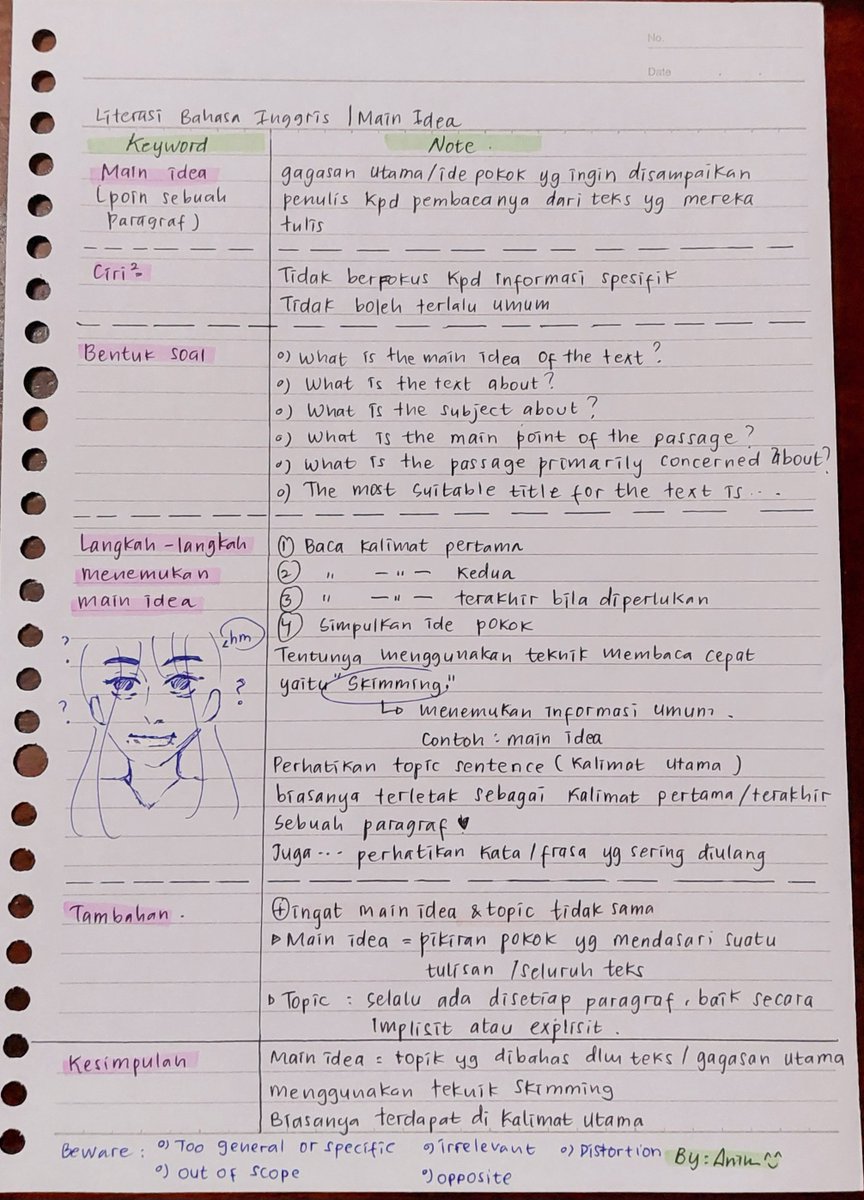 No.
Date
Literasi Bahasa Inggris / Main Idea
Keyword
Note.
Main idea
(poin sebuah
paragraf)
gagasan utama/ide pokok yg ingin disampaikan
penulis kpd pembacanya dari teks yg mereka
tulis
Ciri²
Tidak berfokus kpd informasi spesifik
Tidak boleh terlalu umum
Bentuk soal
o) What is the main idea of the text?
o) What is the text about?
o) What is the subject about?
o) What is the main point of the passage?
o) What is the passage primarily concerned about?
o) The most suitable title for the text is ...
Langkah-langkah
menemukan
main idea
① Baca kalimat pertama
② " — " — kedua
③ " — " — terakhir bila diperlukan
④ Simpulkan ide pokok
hm
? ? ?
Tentunya menggunakan teknik membaca cepat
yaitu "Skimming,"
↳ menemukan informasi umum.
Contoh : main idea
Perhatikan topic sentence (kalimat utama)
biasanya terletak sebagai kalimat pertama/terakhir
sebuah paragraf ♥
Juga ... perhatikan kata/frasa yg sering diulang
Tambahan.
⊕ ingat main idea & topic tidak sama
▷ Main idea = pikiran pokok yg mendasari suatu
tulisan /seluruh teks
▷ Topic : selalu ada disetiap paragraf, baik secara
implisit atau explisit.
Kesimpulan
Main idea = topik yg dibahas dlm teks / gagasan utama
menggunakan teknik skimming
Biasanya terdapat di kalimat utama
Beware : o) Too general or specific o) irrelevant o) Distortion
o) out of scope o) opposite
By: